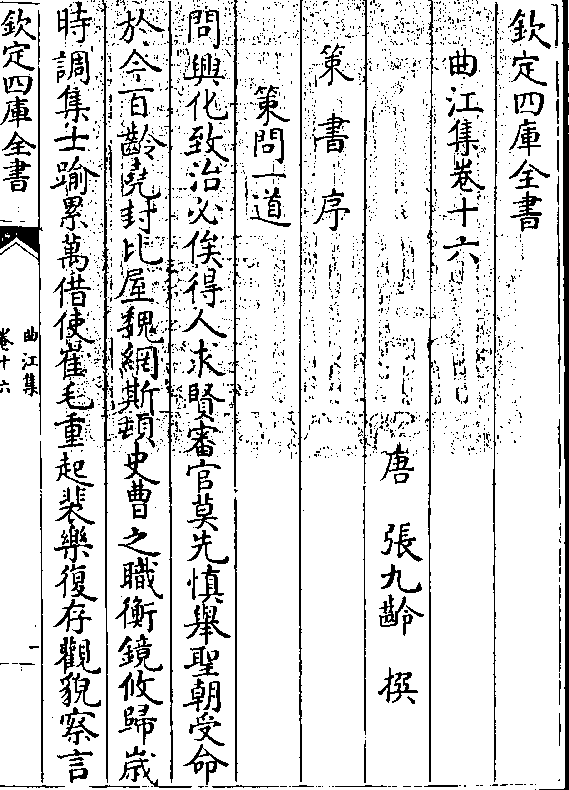 欽定四庫全書
曲江集卷十六
唐 張九齡 撰
策 書 序
策問一道
問興化致治必俟得人求賢審官莫先慎舉聖朝受命
於今百齡堯封比屋魏網斯頓史曹之職衡鏡攸歸歳
時調集士踰累萬借使崔毛重起裴樂復存觀貌察言
欽定四庫全書
曲江集
卷十六
一